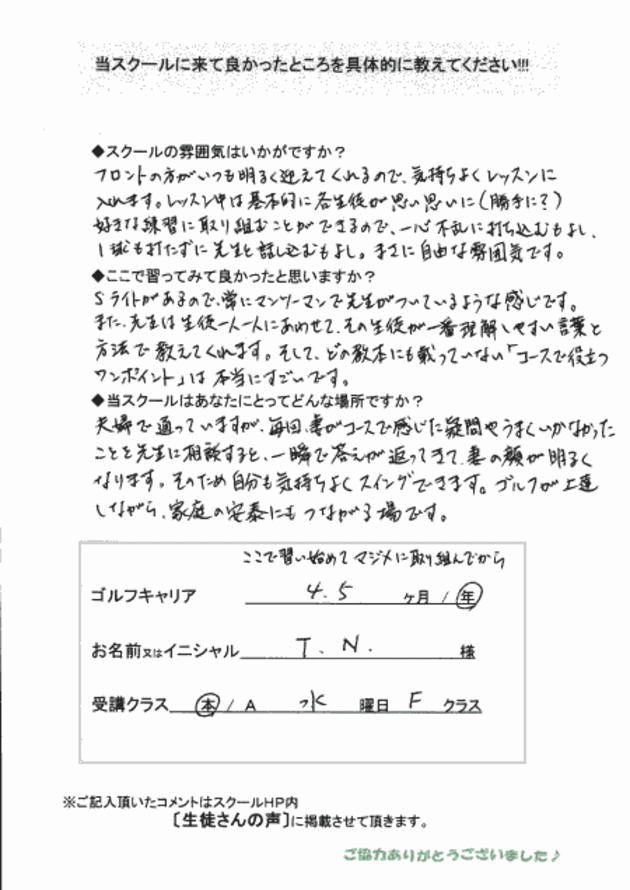 当スクールに来て良かったところを具体的に教えてください!!!
◆スクールの雰囲気はいかがですか？
フロントの方がいつも明るく迎えてくれるので、気持ちよくレッスンに
入れます。レッスン中は基本的に各生徒が思い思いに(勝手に?)
好きな練習に取り組むことができるので、一心不乱に打ち込むもよし、
1球も打たずに先生と話し込むもよし。まさに自由な雰囲気です。
◆ここで習ってみて良かったと思いますか？
Sライトがあるので、常にマンツーマンで先生がついているような感じです。
また、先生は生徒一人一人にあわせて、その生徒が一番理解しやすい言葉と
方法で教えてくれます。そして、どの教本にも載っていない「コースで役立つ
ワンポイント」は本当にすごいです。
◆当スクールはあなたにとってどんな場所ですか？
夫婦で通っていますが、毎回、妻がコースで感じた疑問やうまくいかなかった
ことを先生に相談すると、一瞬で答えが返ってきて、妻の顔が明るく
なります。そのため自分も気持ちよくスイングできます。ゴルフが上達
しながら、家庭の安泰にもつながる場です。
ここで習い始めてマジメに取り組んでから
ゴルフキャリア 4.5 ヶ月 / 年
お名前又はイニシャル T. N. 様
受講クラス 本 / A 水 曜日 F クラス
※ご記入頂いたコメントはスクールHP内
〔生徒さんの声〕に掲載させて頂きます。
ご協力ありがとうございました♪